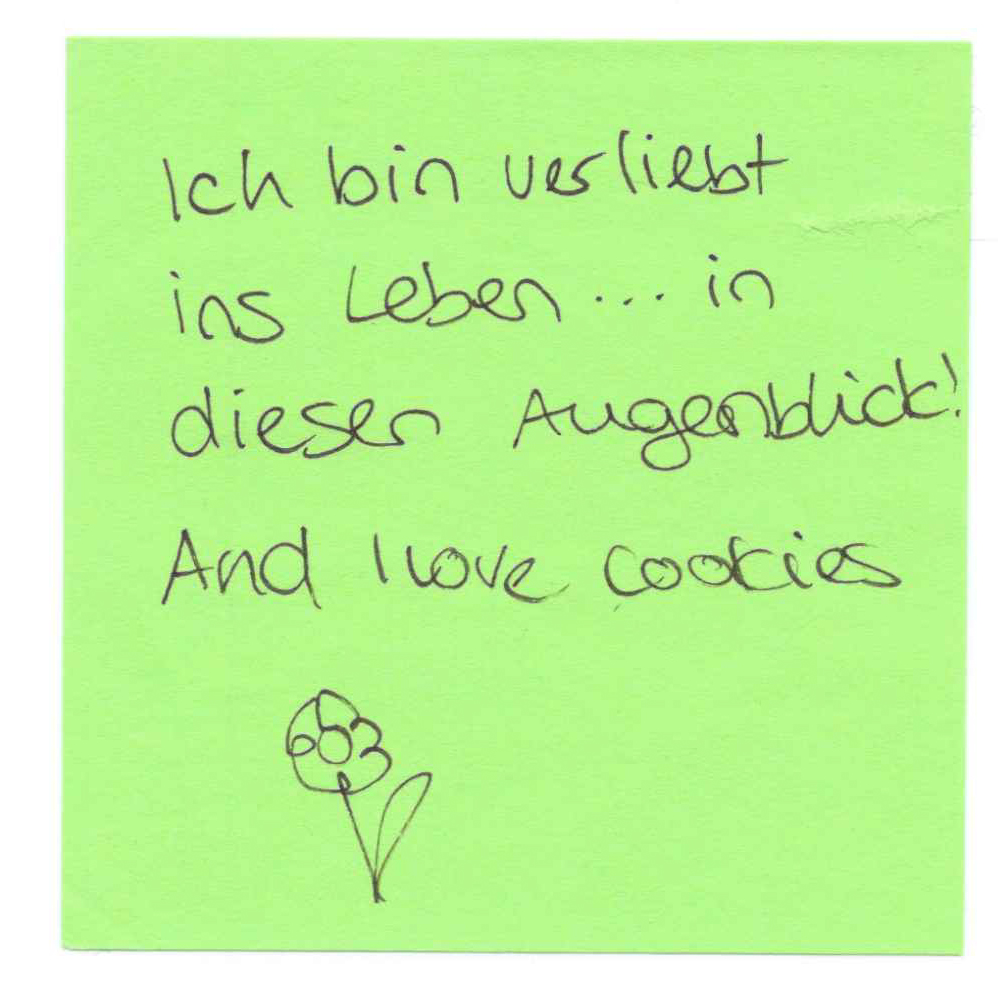 Ich bin verliebt
ins Leben ... in
diesen Augenblick!
And I love cookies